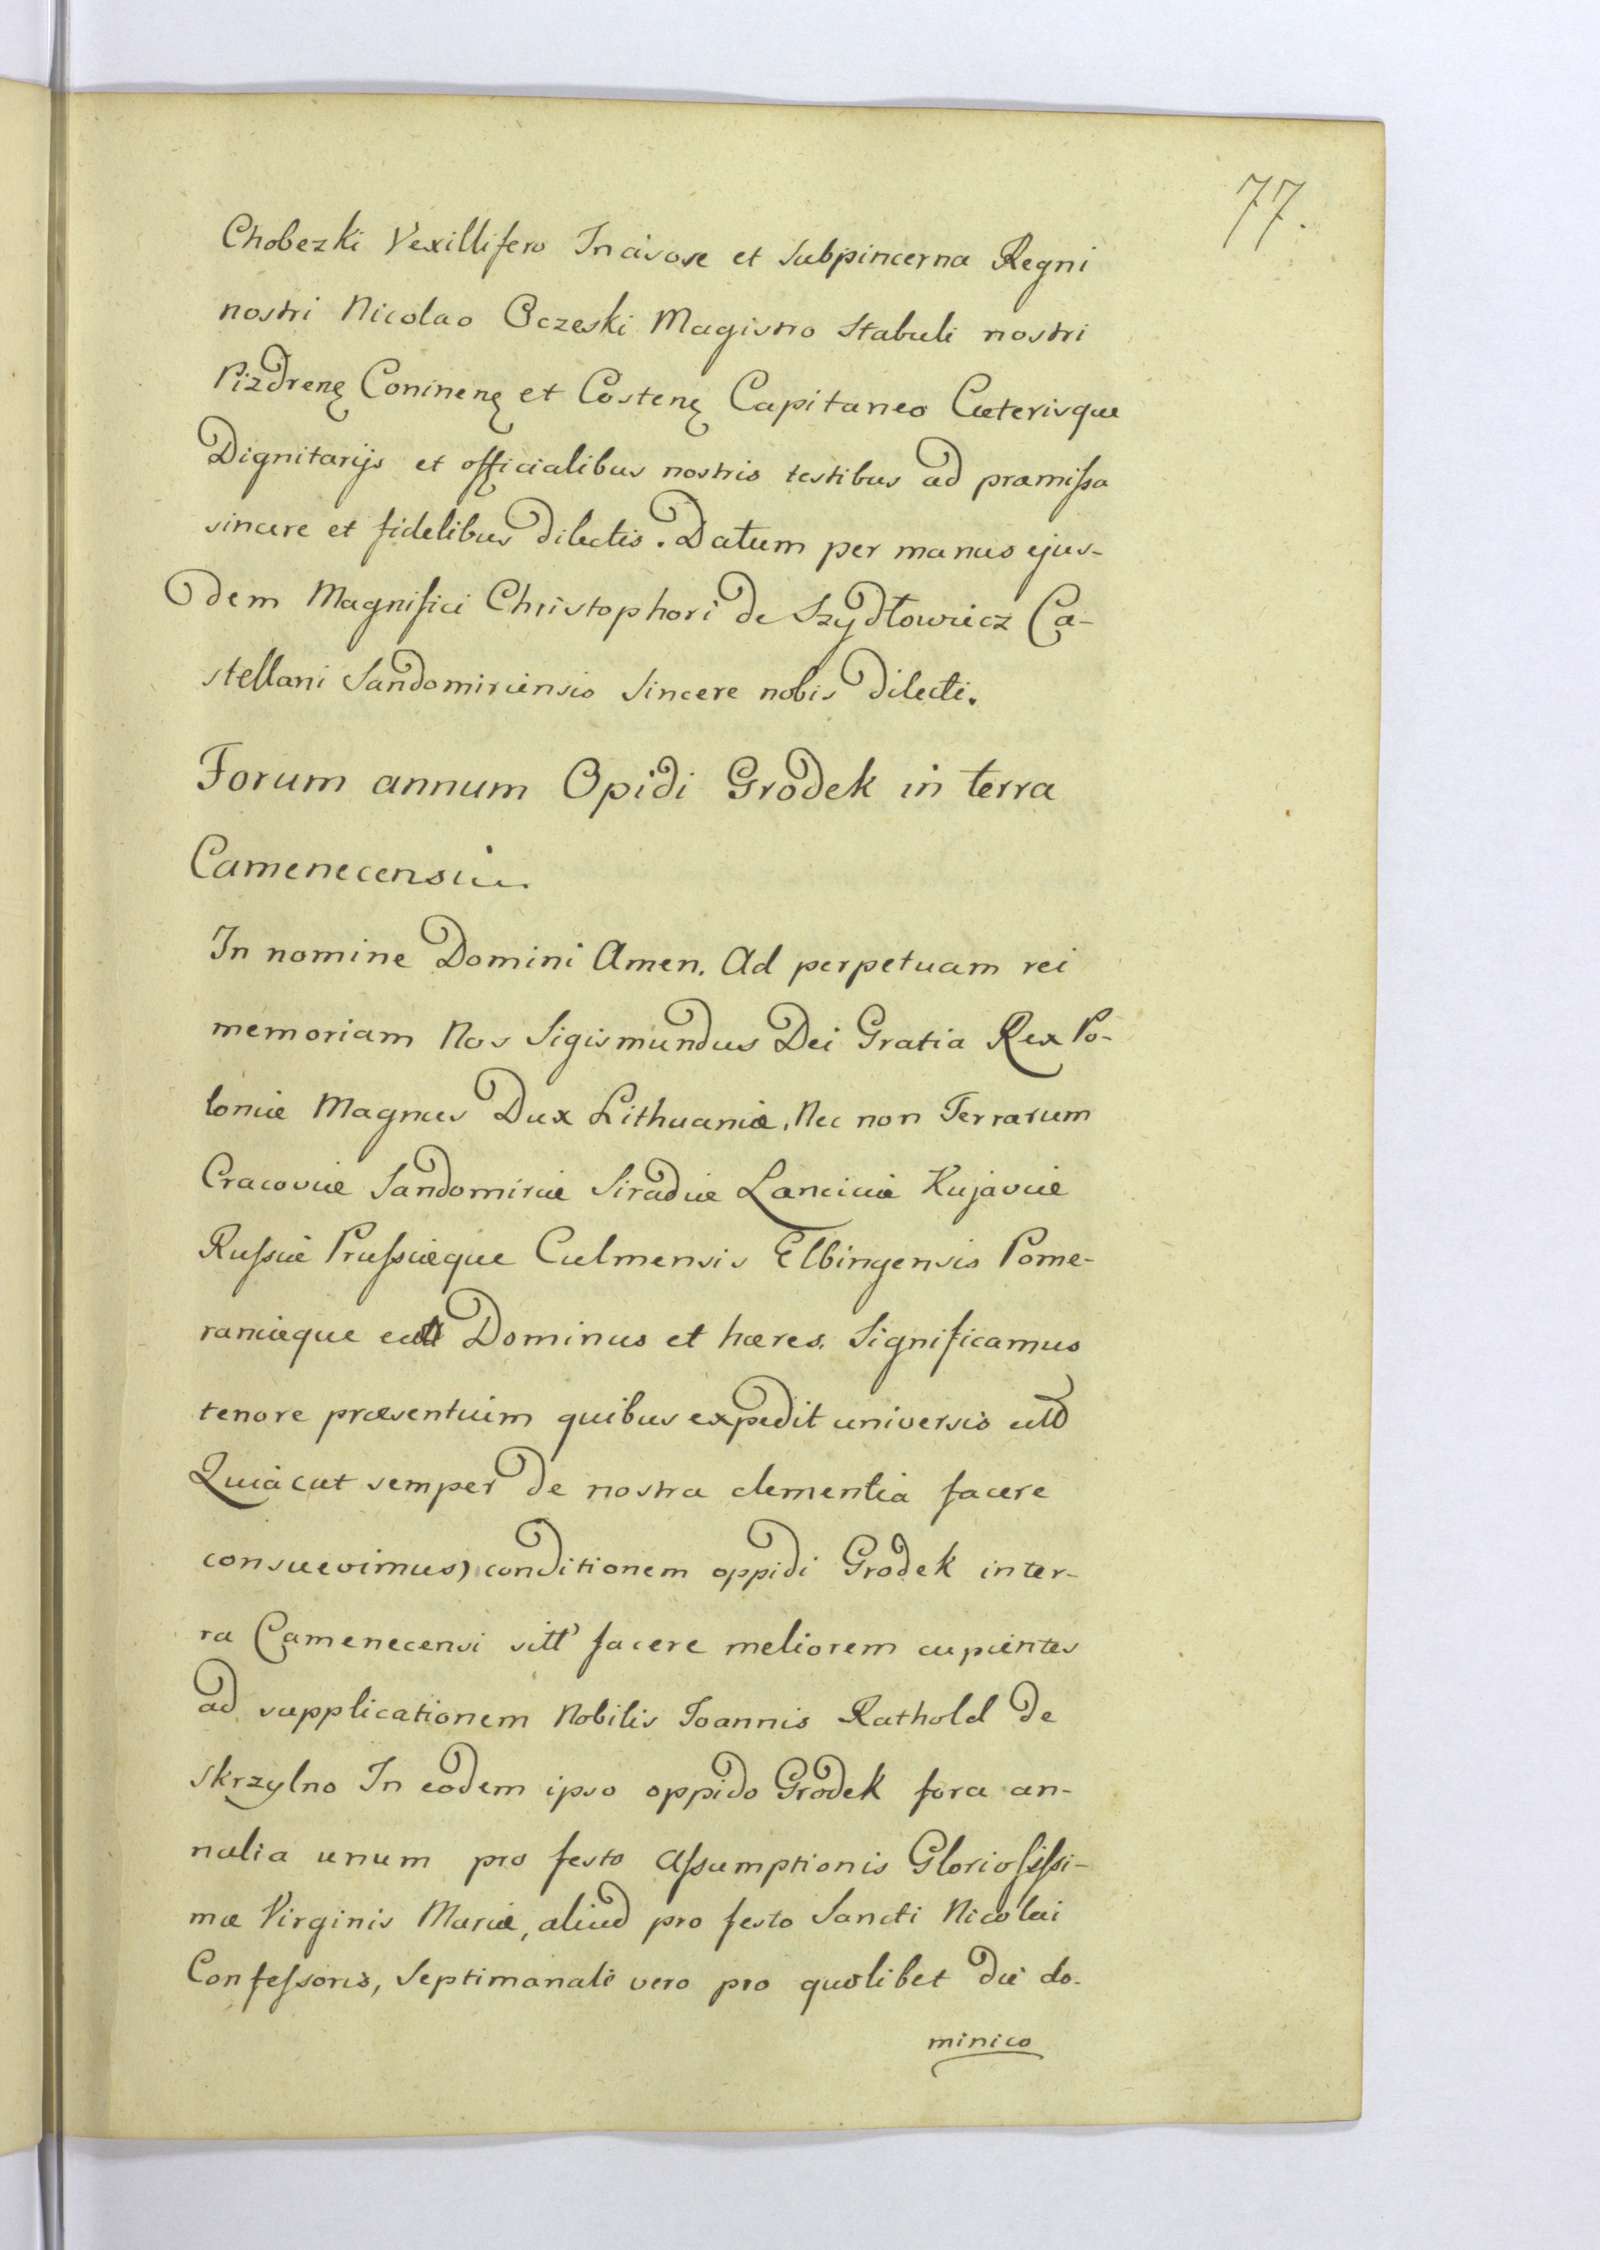 77.
Chobezki Vexillifero Incisore et Subpincerna Regni
nostri Nicolao Oczeski Magistro Stabuli nostri
Pizdrenę Coninenę et Costenę Capitaneo Cæterisque
Dignitarijs et officialibus nostris testibus ad præmiſsa
sincere et fidelibus dilectis. Datum per manus ejus-
dem Magnifici Christophori de Szydłowiecz Ca-
stellani Sandomiriensis Sincere nobis dilecti.
Forum annum Opidi Grodek in terra
Camenecensi
In nomine Domini Amen. Ad perpetuam rei
memoriam Nos Sigismundus Dei Gratia Rex Po-
loniæ Magnus Dux Lithuaniæ, Nec non Terrarum
Cracoviæ Sandomiriæ Siradiæ Lanciciæ Kujaviæ
Ruſsiæ Pruſsiæque Culmensis Elbingensis Pome-
raniæque Dominus et hæres. Significamus
tenore præsentium quibus expedit universis
Quia cut semper de nostra clementia facere
consuevimus) conditionem oppidi Grodek inter-
ra Camenecensi sitt' facere meliorem cupientes
ad supplicationem Nobilis Joannis Rathold de
Skrzylno In eodem ipso oppido Grodek fora an-
nalia unum pro festo Aſsumptionis Glorioſiſsi-
mæ Virginis Mariæ, aliud pro festo Sancti Nicolai
Confeſsoris, Septimanale vero pro quolibet die do-
minico